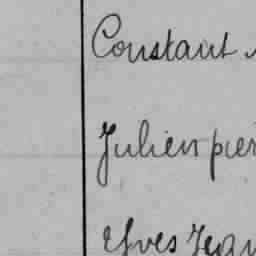 Constant
Julien pier
Yves Jean